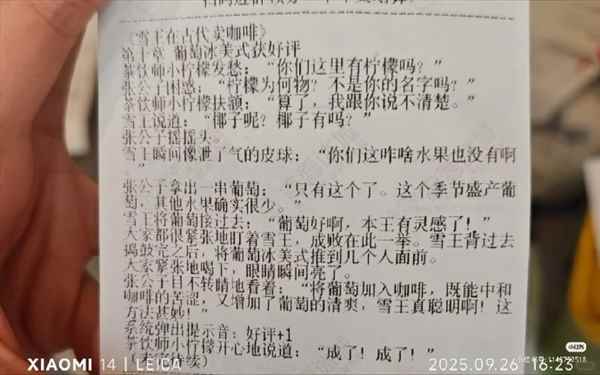 《雪王在古代卖咖啡》
第十章 葡萄冰美式获好评
茶饮师小柠檬发愁：“你们这里有柠檬吗？”
张公子困惑：“柠檬为何物？不是你的名字吗？”
茶饮师小柠檬扶额：“算了，我跟你说不清楚。”
雪王说道：“椰子呢？椰子有吗？”
张公子摇摇头。
雪王瞬间像泄了气的皮球：“你们这咋啥水果也没有啊
”
张公子拿出一串葡萄：“只有这个了。这个季节盛产葡
萄，其他水果确实很少。”
雪王将葡萄接过去：“葡萄好啊，本王有灵感了！”
大家都很紧张地盯着雪王，成败在此一举。雪王背过去
捣鼓了之后，将葡萄冰美式推到几个人面前。
大家紧张地喝下，眼睛瞬间亮了。
张公子目不转睛地看着：“将葡萄加入咖啡，既能中和
咖啡的苦涩，又增加了葡萄的清爽，雪王真聪明啊！这
方法甚妙！”
系统弹出提示音：好评+1
茶饮师小柠檬开心地说道：“成了！成了！”
（未完待续）
XIAOMI 14 | LEICA
2025.09.26 16:23
小红书